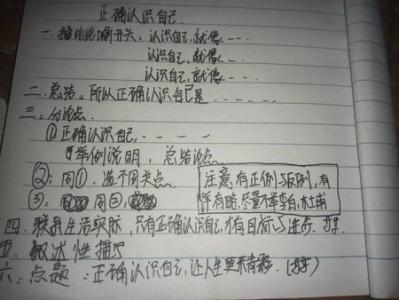 正确认识自己
一、排比论喇开头：认识自己，就像……
认识自己，就像……
认识自己，就像……
二、总结：所以正确认识自己是……
三、分论点
①正确认识自己，……
举例说明，总结论点
②：同①，选不同关点
③：同②
注意：有正例与反例，有
详有略，尽量不举李白、杜甫
四、联系生活实际，只有正确认识自己，才有目标与进步
五、叙述性描写
六：点题：正确认识自己，让人生更来有彩。